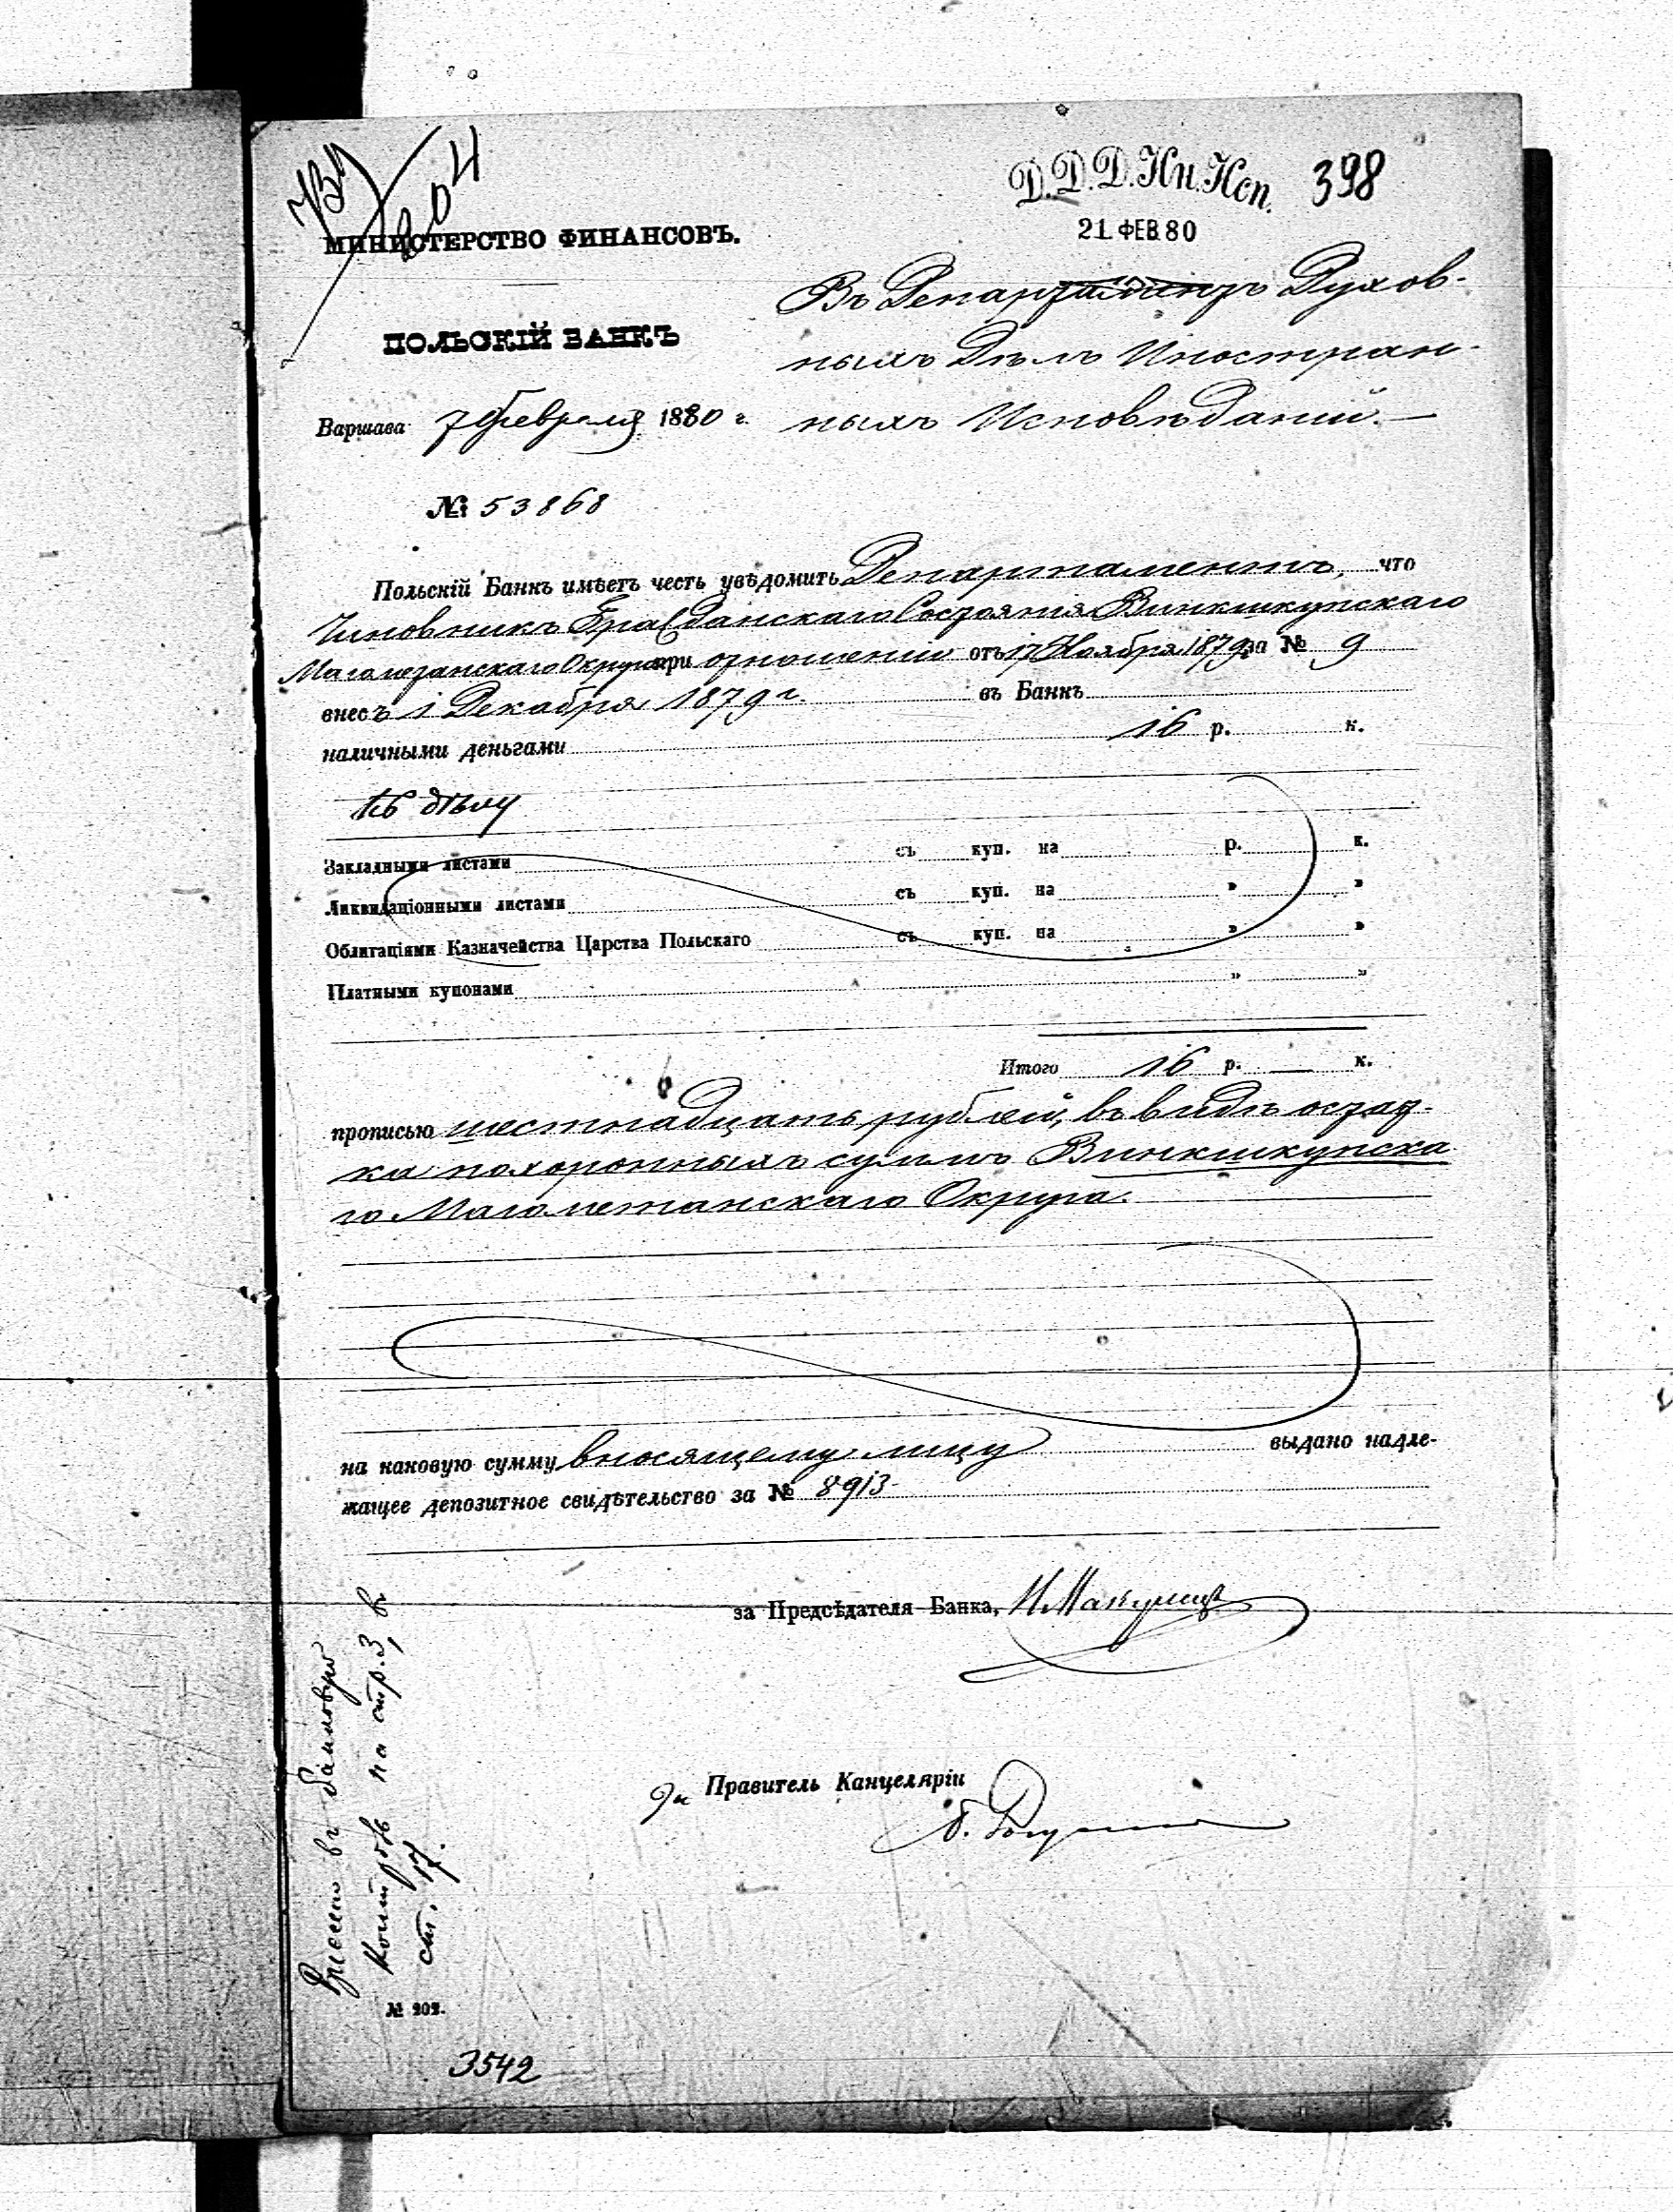 204
Д.Д.Д.Ин.Исп. 398
21 ФЕВ.80
МИНИСТЕРСТВО ФИНАНСОВЪ.
ПОЛЬСКІЙ БАНКЪ
Варшава 7 Февраля 1880 г.
№ 53868
Въ Департаментъ Духов-
ныхъ Дѣлъ Иностран-
ныхъ Исповѣданій.—
Польскій Банкъ имѣетъ честь увѣдомить Департаментъ, что
Чиновникъ Гражданскаго Состоянія Винкшкупскаго
Магометанскаго Округа при отношеніи отъ 17 Ноября 1879 за № 9
внесъ 1 Декабря 1879 г. въ Банкъ
наличными деньгами 16 р. к.
Къ дѣлу
Закладными листами съ куп. на р. к.
Ликвидаціонными листами съ куп. на " "
Облигаціями Казначейства Царства Польскаго съ куп. на " "
Платными купонами " "
Итого 16 р. — к.
прописью шестнадцать рублей, въ видѣ остат-
ка похоронныхъ суммъ Винкшкупска-
го Магометанскаго Округа.
на каковую сумму вносящему лицу выдано надле-
жащее депозитное свидѣтельство за № 8913
за Предсѣдателя Банка,
Правитель Канцеляріи
Внесено въ
на стр. 3, в
ст. 17.
№ 202.
3542